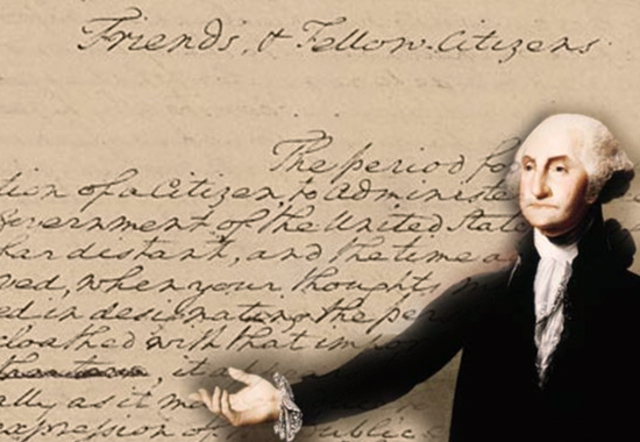 Friends, & Fellow-Citizens
The period fo
tion of a Citizen, to administe
Government of the United State
far distant, and the time a
ved, when your thoughts
ed in designating the per
cloathed with that impor
, it a
ally as it m
expression of public